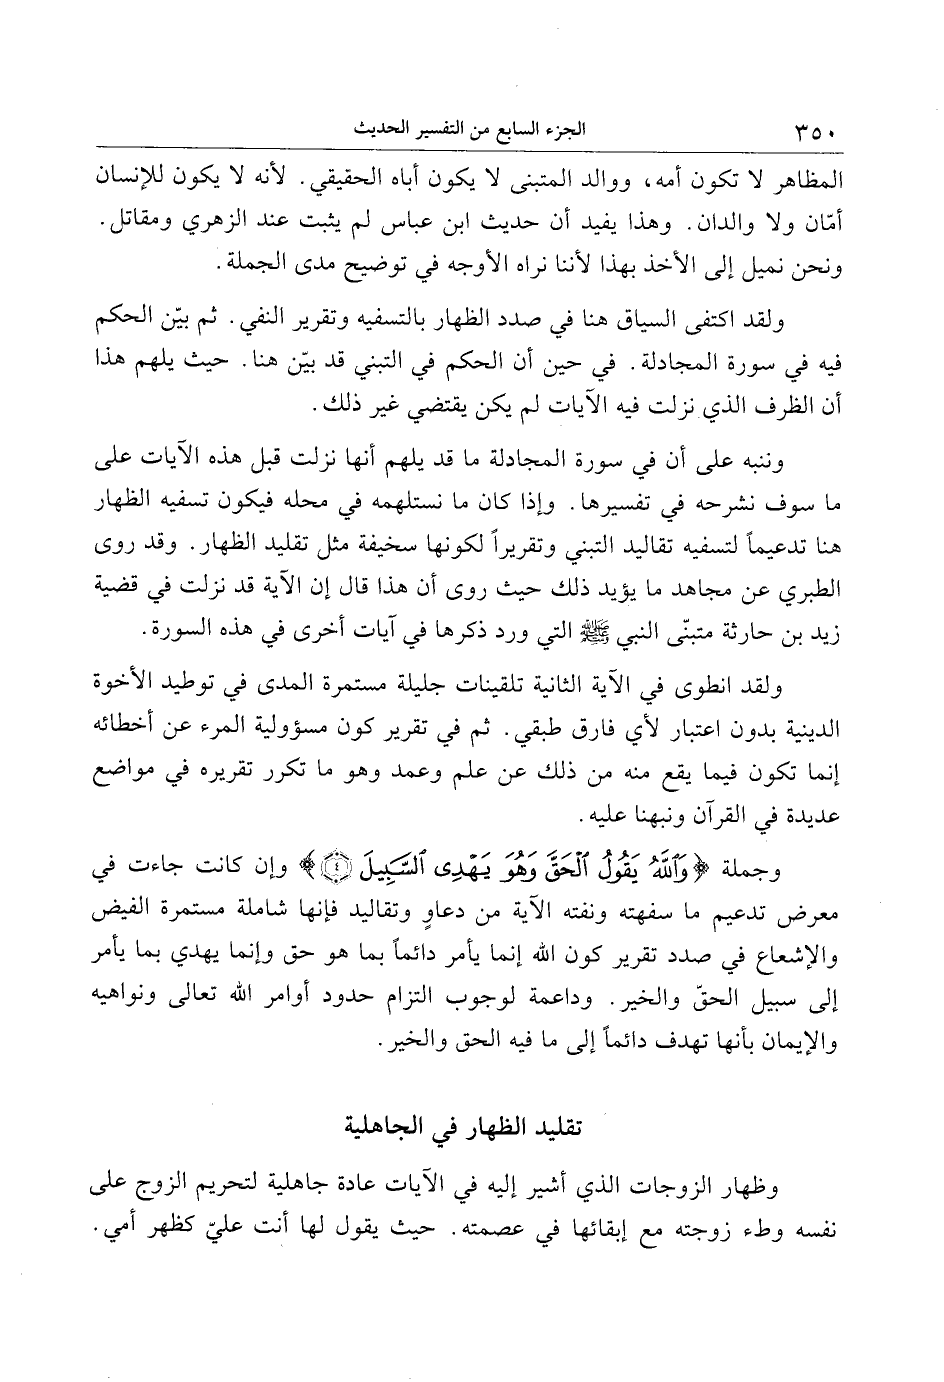 ٣٥٠ الجزء السابع من التفسير الحديث
المظاهر لا تكون أمه، ووالد المتبنى لا يكون أباه الحقيقي. لأنه لا يكون للإنسان
أمّان ولا والدان. وهذا يفيد أن حديث ابن عباس لم يثبت عند الزهري ومقاتل.
ونحن نميل إلى الأخذ بهذا لأننا نراه الأوجه في توضيح مدى الجملة.
ولقد اكتفى السياق هنا في صدد الظهار بالتسفيه وتقرير النفي. ثم بيّن الحكم
فيه في سورة المجادلة. في حين أن الحكم في التبني قد بيّن هنا. حيث يلهم هذا
أن الظرف الذي نزلت فيه الآيات لم يكن يقتضي غير ذلك.
وننبه على أن في سورة المجادلة ما قد يلهم أنها نزلت قبل هذه الآيات على
ما سوف نشرحه في تفسيرها. وإذا كان ما نستلهمه في محله فيكون تسفيه الظهار
هنا تدعيماً لتسفيه تقاليد التبني وتقريراً لكونها سخيفة مثل تقليد الظهار. وقد روى
الطبري عن مجاهد ما يؤيد ذلك حيث روى أن هذا قال إن الآية قد نزلت في قضية
زيد بن حارثة متبنّى النبي ﷺ التي ورد ذكرها في آيات أخرى في هذه السورة.
ولقد انطوى في الآية الثانية تلقينات جليلة مستمرة المدى في توطيد الأخوة
الدينية بدون اعتبار لأي فارق طبقي. ثم في تقرير كون مسؤولية المرء عن أخطائه
إنما تكون فيما يقع منه من ذلك عن علم وعمد وهو ما تكرر تقريره في مواضع
عديدة في القرآن ونبهنا عليه.
وجملة ﴿وَٱللَّهُ يَقُولُ ٱلْحَقَّ وَهُوَ يَهْدِى ٱلسَّبِيلَ ٤﴾ وإن كانت جاءت في
معرض تدعيم ما سفهته ونفته الآية من دعاوٍ وتقاليد فإنها شاملة مستمرة الفيض
والإشعاع في صدد تقرير كون الله إنما يأمر دائماً بما هو حق وإنما يهدي بما يأمر
إلى سبيل الحقّ والخير. وداعمة لوجوب التزام حدود أوامر الله تعالى ونواهيه
والإيمان بأنها تهدف دائماً إلى ما فيه الحق والخير.
تقليد الظهار في الجاهلية
وظهار الزوجات الذي أشير إليه في الآيات عادة جاهلية لتحريم الزوج على
نفسه وطء زوجته مع إبقائها في عصمته. حيث يقول لها أنت عليّ كظهر أمي.